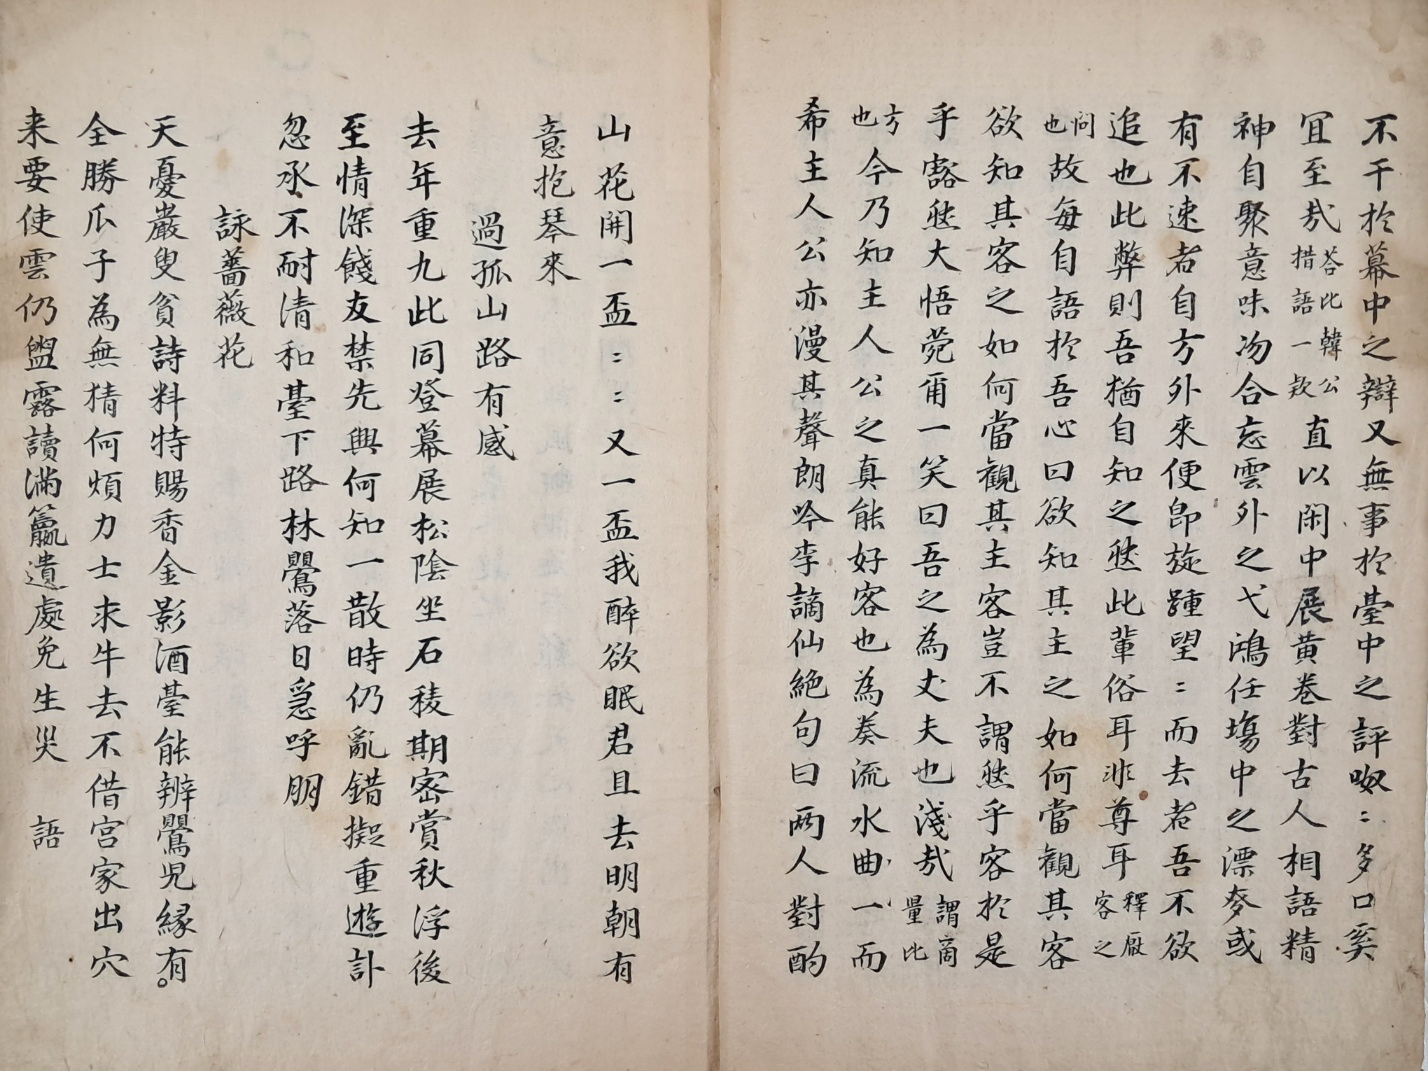 不干於幕中之辯又無事於臺中之評呶〻多口奚
宜至㢤荅比韓公措語一欵直以閑中展黃卷對古人相語精
神自聚意味沕合忘雲外之弋鴻任塲中之漂麥或
有不速者自方外來便卽旋踵望〻而去者吾不欲
追也此弊則吾猶自知之然此輩俗耳非尊耳釋厭客之
問也故每自語於吾心曰欲知其主之如何當觀其客
欲知其客之如何當觀其主客豈不謂然乎客於是
乎豁然大悟莞爾一笑曰吾之為丈夫也淺㢤謂商量比
方也今乃知主人公之真能好客也為奏流水曲一而
希主人公亦漫其聲朗吟李謫仙絶句曰兩人對酌
山花開一盃〻〻又一盃我醉欲眠君且去明朝有
意抱琴來
過孤山路有感
去年重九此同登幕展松陰坐石稜期宻賞秋浮後
至情深餞友禁先興何知一散時仍亂錯擬重遊訃
忽承不耐清和臺下路林鸎落日㤂呼朋
詠薔薇花
天憂巖叟貧詩料特賜香金影酒臺能辨鸎児緣有。
全勝瓜子為無猜何煩力士求牛去不借宮家出穴
来要使雲仍盥露讀滿籯遺處免生災 語